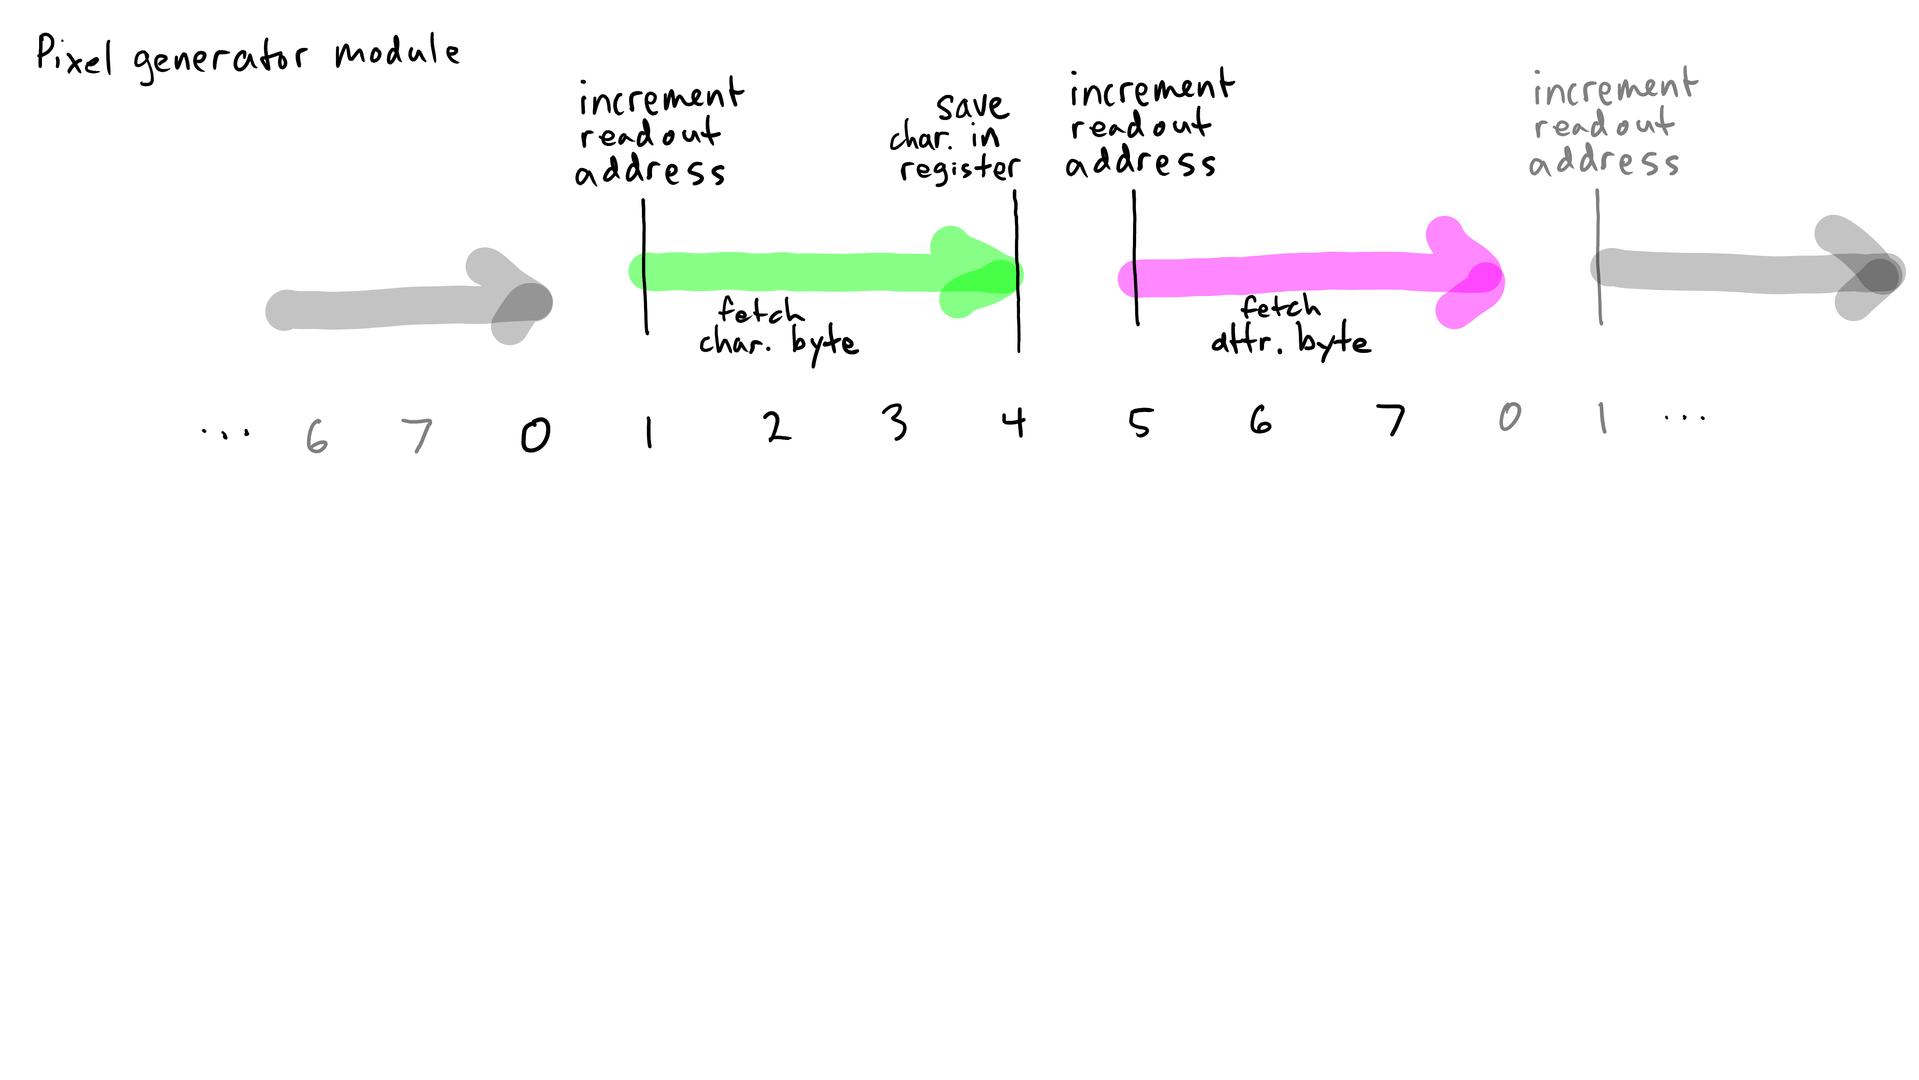 Pixel generator module
increment
readout
address
save
char. in
register
increment
readout
address
increment
readout
address
fetch
char. byte
fetch
attr. byte
... 6 7 0 1 2 3 4 5 6 7 0 1 ...